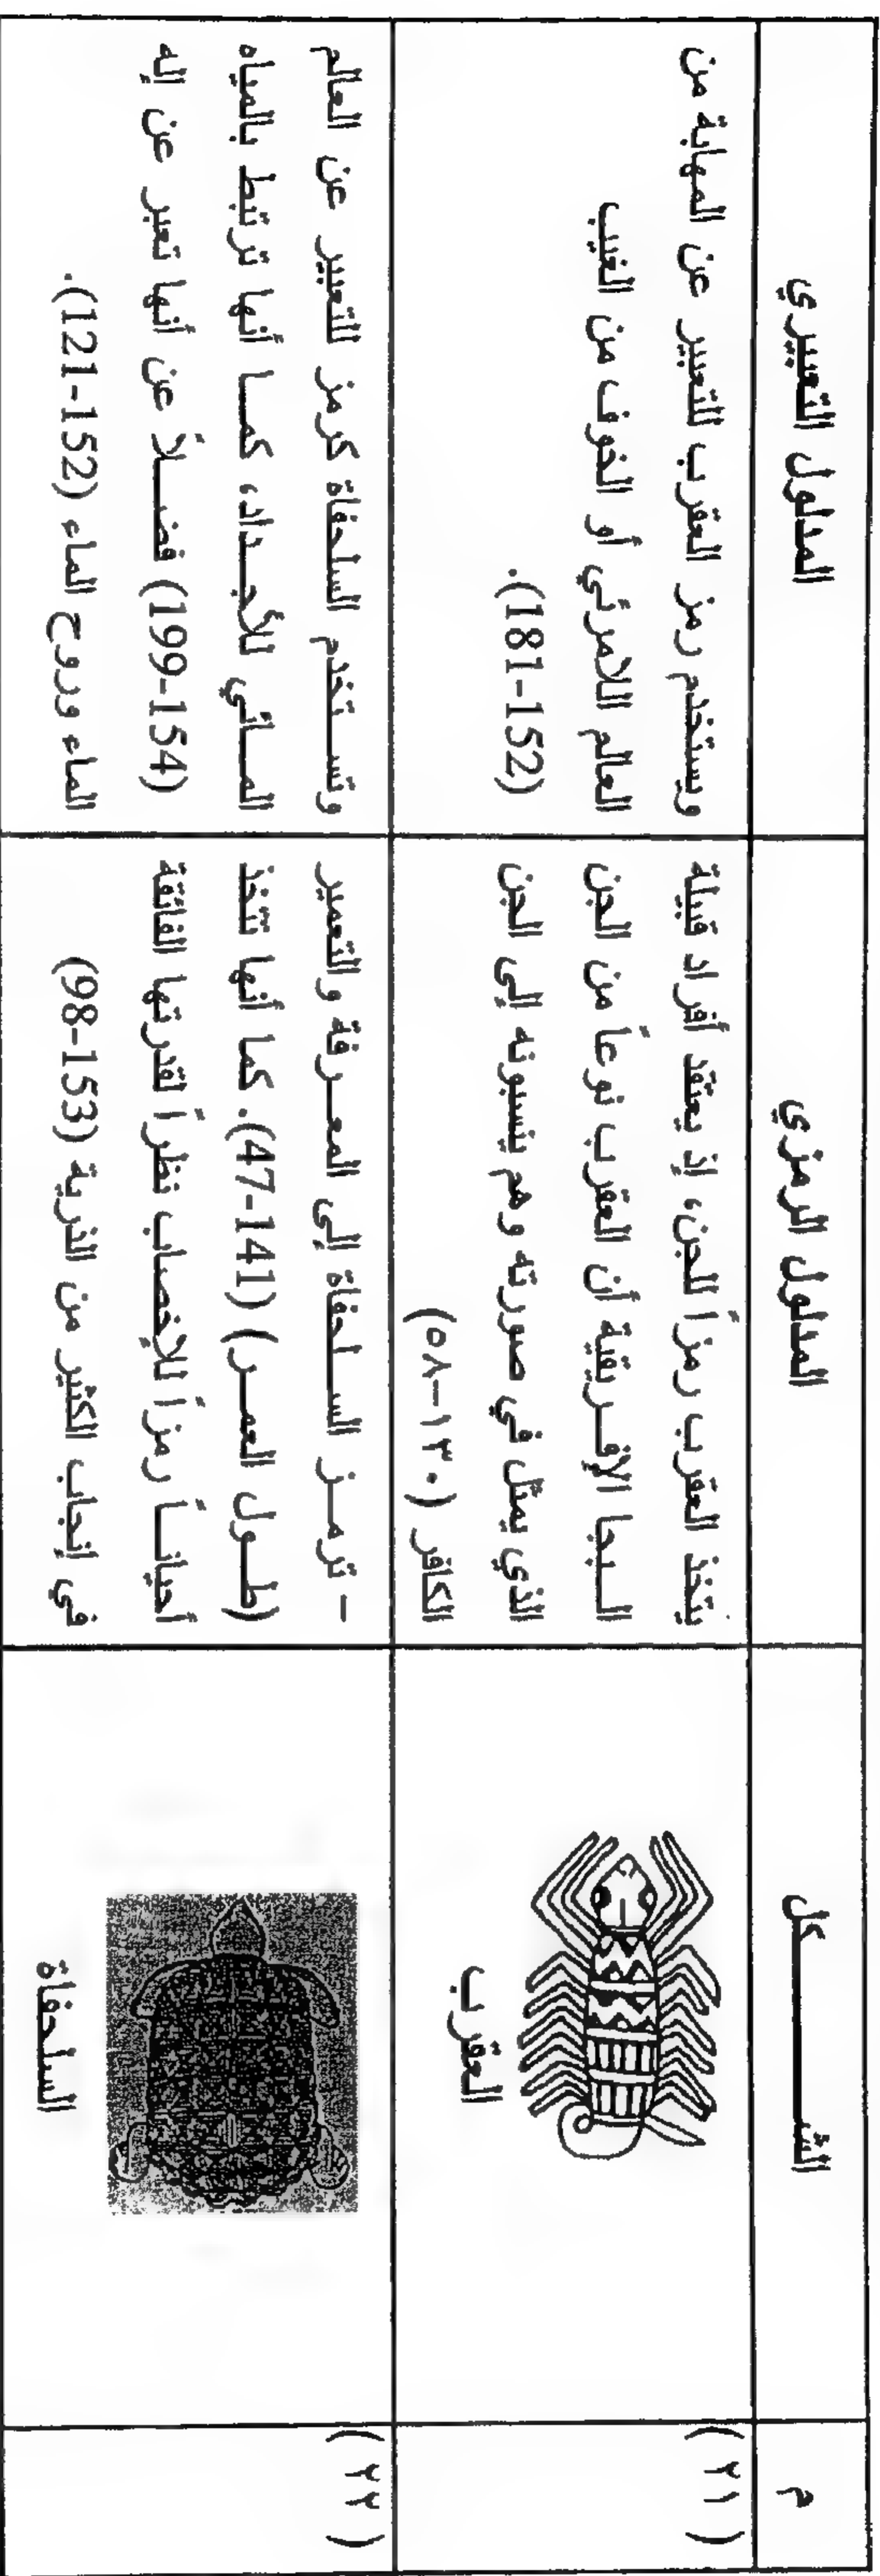 م
الشـــــــكل
المدلول الرمزي
المدلول التعبيري
( ٢١ )
العقرب
يتخذ العقرب رمزاً للجن، إذ يعتقد أفراد قبيلة
الـبجا الإفـريقية أن العقرب نوعاً من الجن
الذي يمثل في صورته وهم ينسبونه إلى الجن
الكافر (١٣٠–٥٨)
ويستخدم رمز العقرب للتعبير عن المهابة من
العالم اللامرئي أو الخوف من الغيب
(181-152).
( ٢٢ )
السلحفاة
– ترمـز السـلحفاة إلى المعـرفة والتعمير
(طـول العمـر) (47-141). كما أنها تتخذ
أحيانـاً رمزاً للإخصاب نظراً لقدرتها الفائقة
في إنجاب الكثير من الذرية (98-153)
وتسـتخدم السلحفاة كرمز للتعبير عن العالم
المـائي للأجـداد، كمـا أنها ترتبط بالمياه
(199-154) فضـلاً عن أنها تعبر عن إله
الماء وروح الماء (121-152).